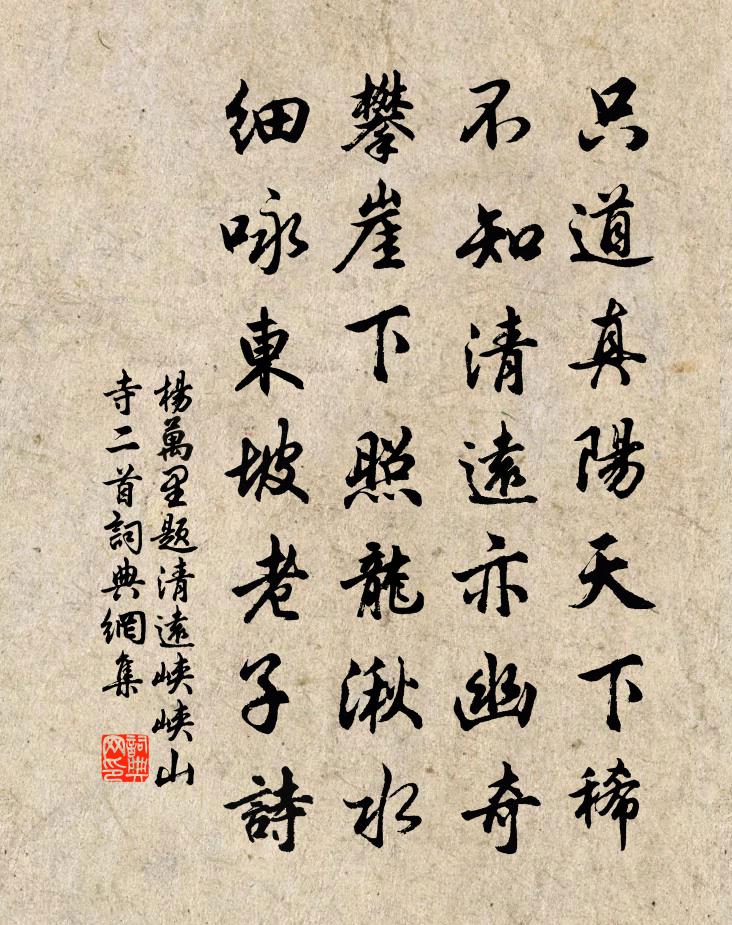 只道真陽天下稀
不知清遠亦幽奇
攀崖下照龍湫水
細咏東坡老子詩
楊萬里題清遠峽峽山
寺二首詞典網集
詞典
网印